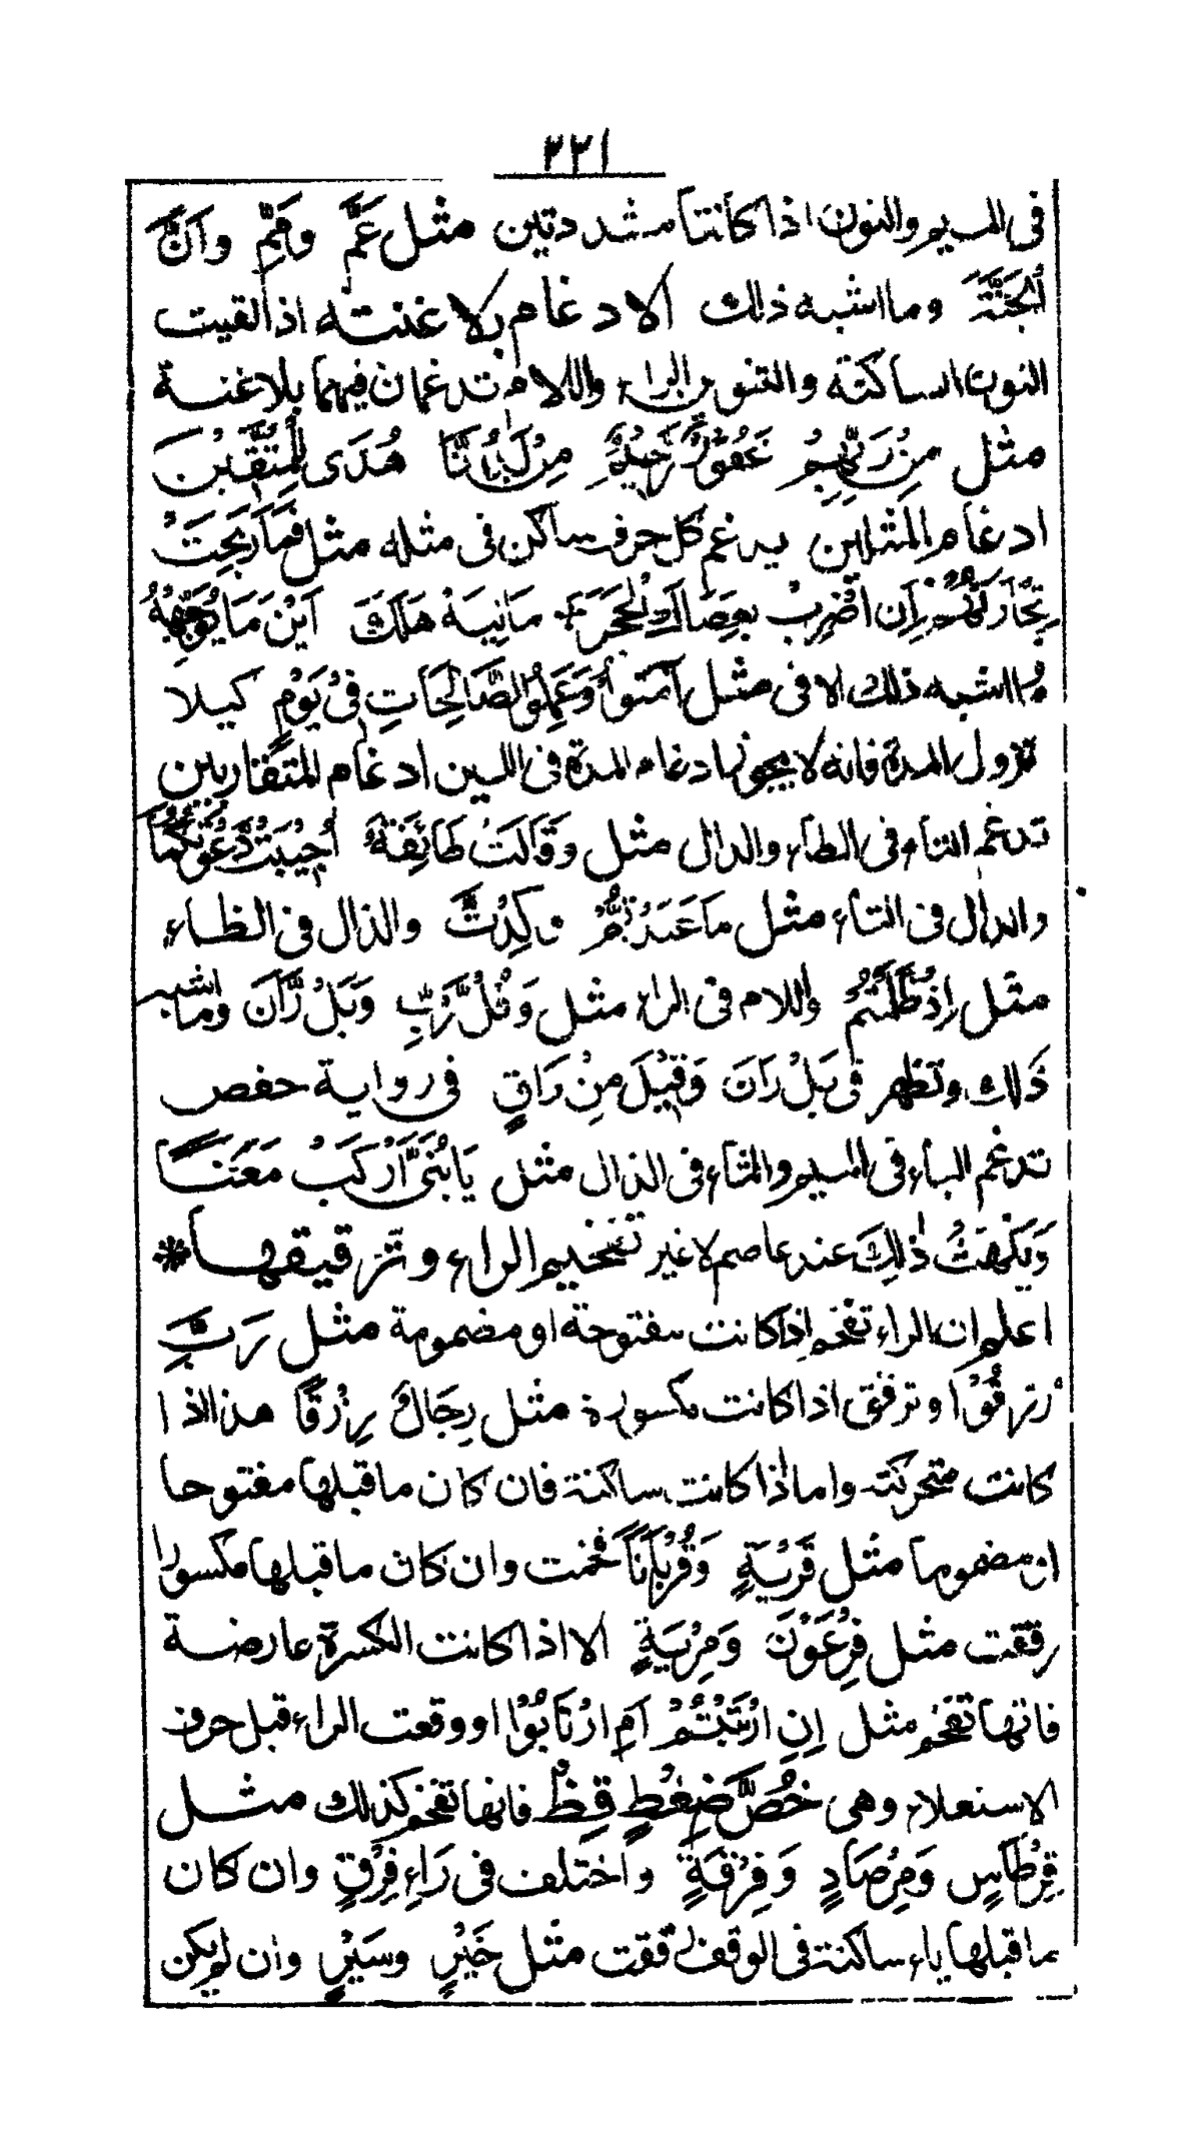 ٢٢١
في الميم والنون اذا كانتا مشددتين مثل عَمَّ وهَمَّ وانَّ
الْجَنَّةَ وما اشبه ذلك الادغام بلا غنته اذا لقيت
النون الساكنة والتنوين الراء واللام تدغمان فيهما بلا غنة
مثل مِنْ رَبِّهِمْ غَفُورٌ رَحِيمٌ مِنْ لَدُنَّا هُدًى لِلْمُتَّقِينَ
ادغام المثلين يدغم كل حرف ساكن في مثله مثل فَمَا رَبِحَتْ
تِجَارَتُهُمْ اَنِ اضْرِبْ بِعَصَاكَ الْحَجَرَ مَالِيَهْ هَلَكَ اَيْنَمَا يُوَجِّهْهُ
وما اشبه ذلك الا في مثل آمَنُوا وَعَمِلُوا الصَّالِحَاتِ فِيْ يَوْمٍ كيلا
تزول المدة فانه لا يجوز ادغام المدة في اللين ادغام المتقاربين
تدغم التاء في الطاء والدال مثل وَقَالَتْ طَائِفَةٌ اُجِيْبَتْ دَّعْوَتُكُمَا
والدال في التاء مثل مَا عَبَدْتُّمْ وكِدْتَّ والذال في الظاء
مثل اِذْ ظَّلَمْتُمْ واللام في الراء مثل وَقُلْ رَّبِّ وَبَلْ رَّانَ وما اشبه
ذلك وتظهر في بَلْ رَانَ وَقِيْلَ مَنْ رَاقٍ في رواية حفص
تدغم الباء في الميم والثاء في الذال مثل يَا بُنَيَّ ارْكَبْ مَعَنَا
وَيَلْهَثْ ذٰلِكَ عند عاصم لا غير تفخيم الراء وترقيقها *
اعلم ان الراء تفخم اذا كانت مفتوحة او مضمومة مثل رَبِّ
رُزِقُوْا وترقق اذا كانت مكسورة مثل رِجَالٌ رِزْقًا هذا اذا
كانت متحركة واما اذا كانت ساكنة فان كان ما قبلها مفتوحا
او مضموما مثل قَرْيَةٍ وَقُرْآنًا فخمت وان كان ما قبلها مكسورا
رققت مثل فِرْعَوْنَ وَمِرْيَةٍ الا اذا كانت الكسرة عارضة
فانها تفخم مثل اِنِ ارْتَبْتُمْ اَمِ ارْتَابُوْا او وقعت الراء قبل حرف
الاستعلاء وهي خُصَّ ضَغْطٍ قِظْ فانها تفخم كذلك مثل
قِرْطَاسٍ وَمِرْصَادٍ وَفِرْقَةٍ واختلف في رَاءِ فِرْقٍ وان كان
ما قبلها ياء ساكنة في الوقف رققت مثل خَيْرٍ وسَيْرٍ وان لم يكن